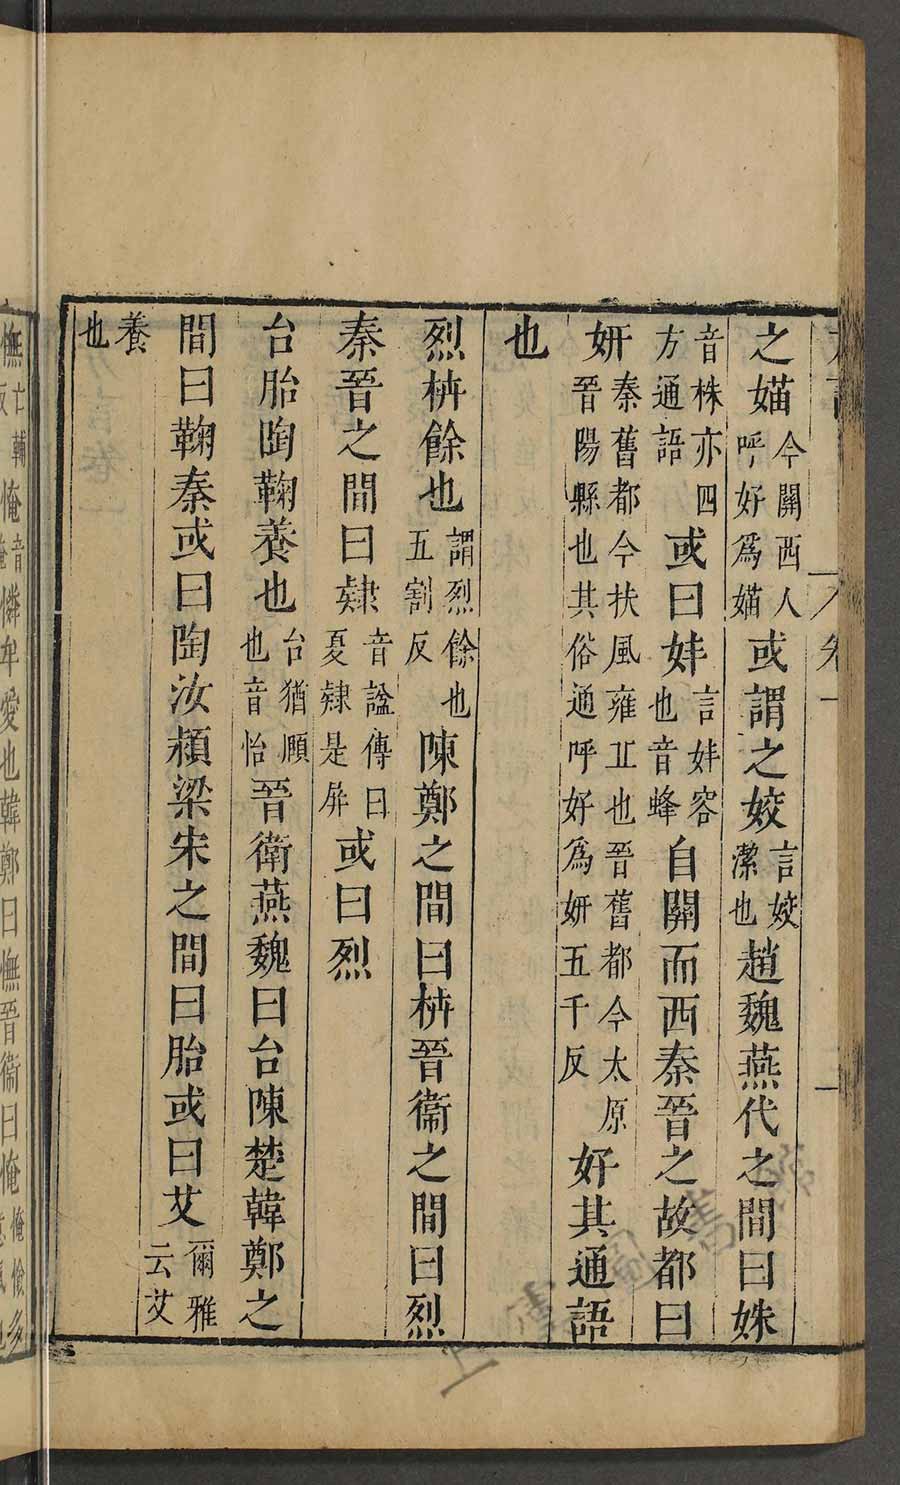 之媌今關西人呼好爲媌或謂之姣言姣潔也趙魏燕代之間曰姝
音株亦四方通語或曰妦言妦容也音蜂自關而西秦晉之故都曰
妍秦舊都今扶風雍丘也晉舊都今太原晉陽縣也其俗通呼好爲妍五千反好其通語
也
烈枿餘也謂烈餘也五割反陳鄭之間曰枿晉衞之間曰烈
秦晉之間曰隸音謚傳曰夏隸是屏或曰烈
台胎陶鞠養也台猶頤也音怡晉衛燕魏曰台陳楚韓鄭之
間曰鞠秦或曰陶汝潁梁宋之間曰胎或曰艾爾雅云艾
養也
憮亡輔反㤿音憐牟愛也韓鄭曰憮晉衛曰㤿